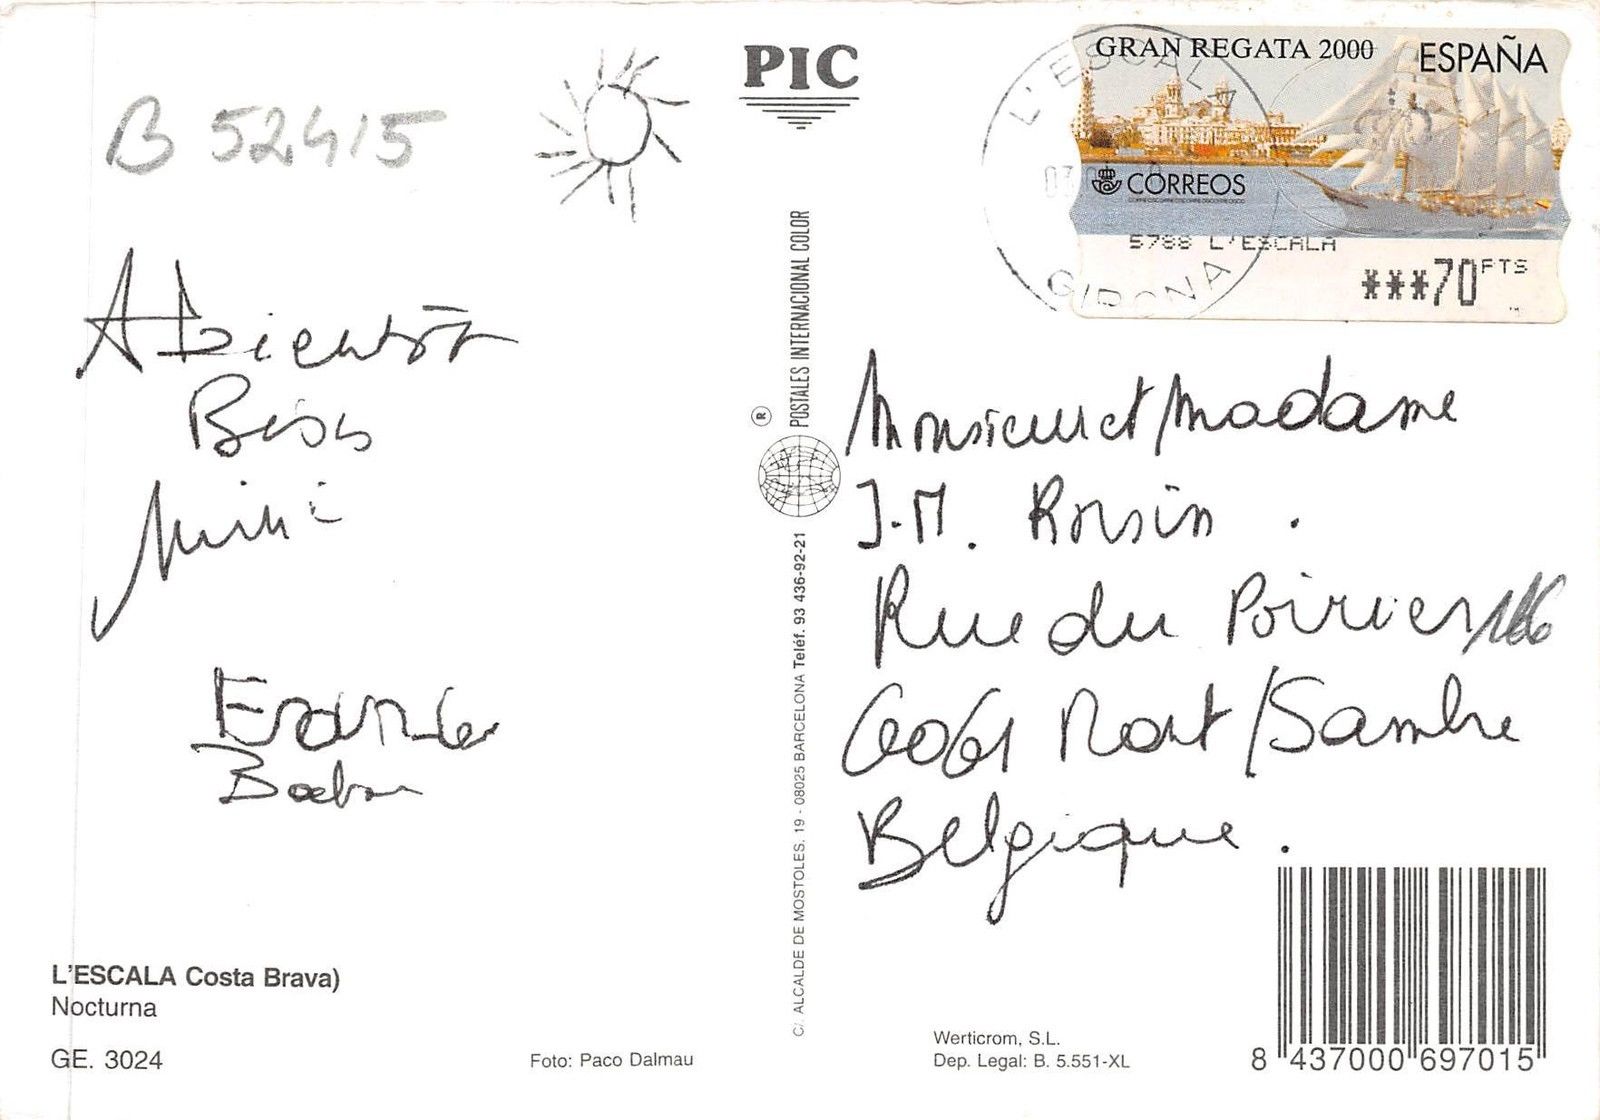 B 52415
PIC
GRAN REGATA 2000
ESPAÑA
CORREOS
5788 L'ESCALA
***70 PTS
L'ESCALA
GIRONA
A bientôt
Bisis
Mimi
Monsieur et Madame
J.M. Roisin.
Rue du Poirier 166
6061 Mont/Sambre
Belgique.
® POSTALES INTERNACIONAL COLOR
C/. ALCALDE DE MOSTOLES, 19 - 08025 BARCELONA Teléf. 93 436-92-21
L'ESCALA Costa Brava)
Nocturna
GE. 3024
Foto: Paco Dalmau
Werticrom, S.L.
Dep. Legal: B. 5.551-XL
8 437000 697015